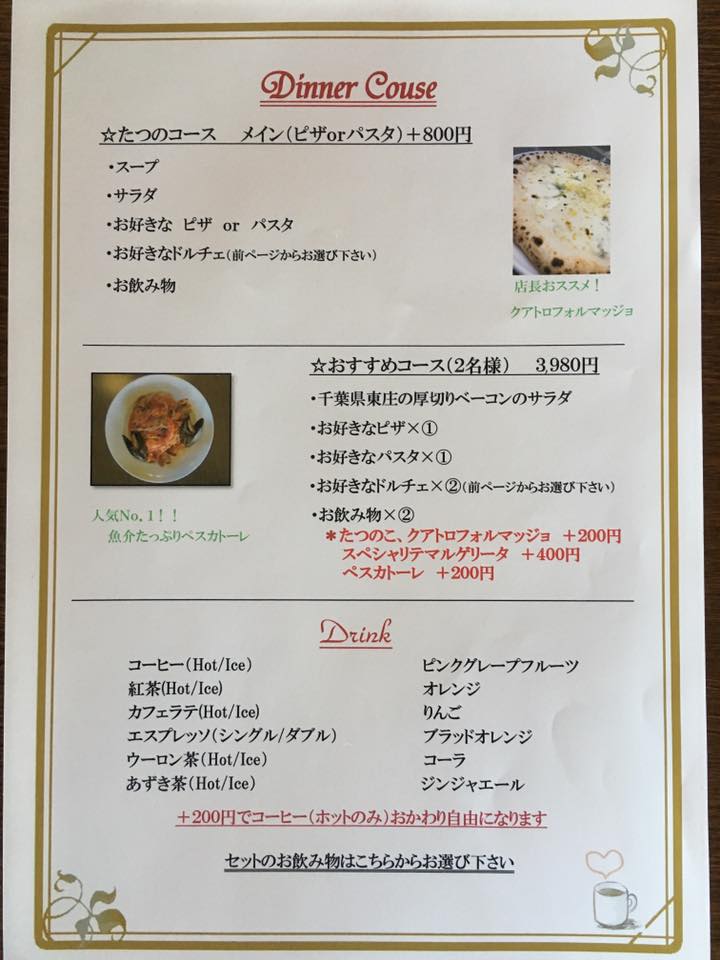 Dinner Couse
☆たつのコース　メイン（ピザorパスタ）＋800円
・スープ
・サラダ
・お好きな ピザ or パスタ
・お好きなドルチェ（前ページからお選び下さい）
・お飲み物
店長おススメ！
クアトロフォルマッジョ
☆おすすめコース（2名様）　3,980円
・千葉県東庄の厚切りベーコンのサラダ
・お好きなピザ×①
・お好きなパスタ×①
・お好きなドルチェ×②（前ページからお選び下さい）
・お飲み物×②
＊たつのこ、クアトロフォルマッジョ ＋200円
スペシャリテマルゲリータ ＋400円
ペスカトーレ ＋200円
人気No.1！！
魚介たっぷりペスカトーレ
Drink
コーヒー（Hot/Ice）
紅茶(Hot/Ice)
カフェラテ(Hot/Ice)
エスプレッソ（シングル/ダブル）
ウーロン茶（Hot/Ice）
あずき茶（Hot/Ice）
ピンクグレープフルーツ
オレンジ
りんご
ブラッドオレンジ
コーラ
ジンジャエール
＋200円でコーヒー（ホットのみ）おかわり自由になります
セットのお飲み物はこちらからお選び下さい